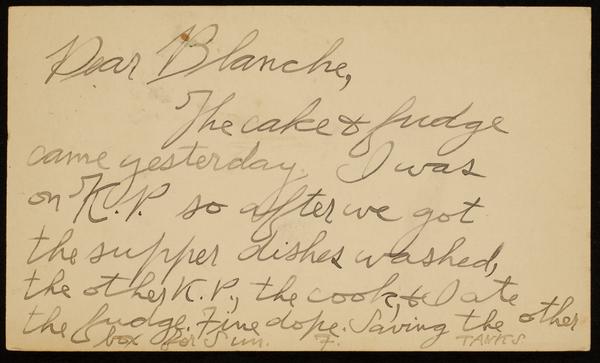 Dear Blanche,
The cake & fudge
came yesterday. I was
on K.P. so after we got
the supper dishes washed,
the other K.P., the cook, & I ate
the fudge. Fine dope. Saving the other
box for Sun. F. TANKS